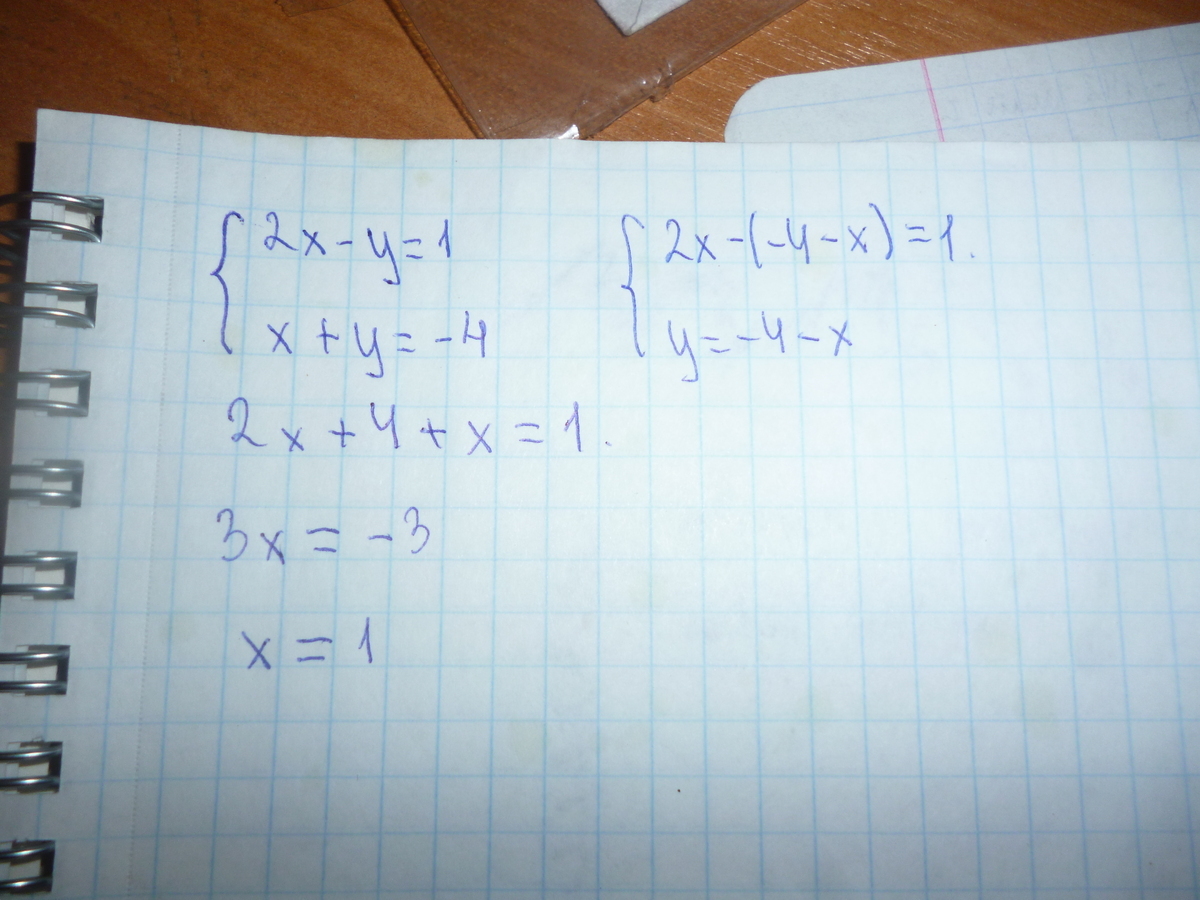 2x-y=1
x+y=-4
2x-(-4-x)=1.
y=-4-x
2x+4+x=1.
3x=-3
x=1